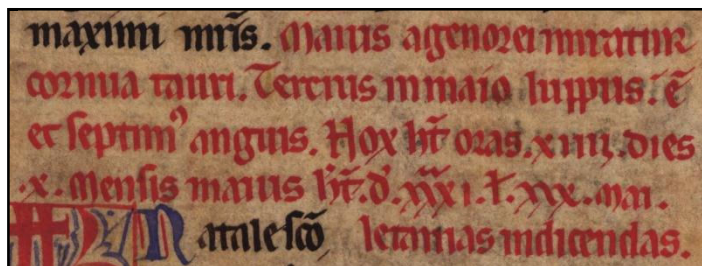 maximi mr̃is. Maius agenorei miratur
cornua tauri. Tercius in maio luppus. ē
et septim᷒ anguis. Nox hт̄ oras. xiiij. dies
.x. Mensis maius hт̄. d̾. xxxi. ł. xxx. mai.
Natale scō letanias indicendas.